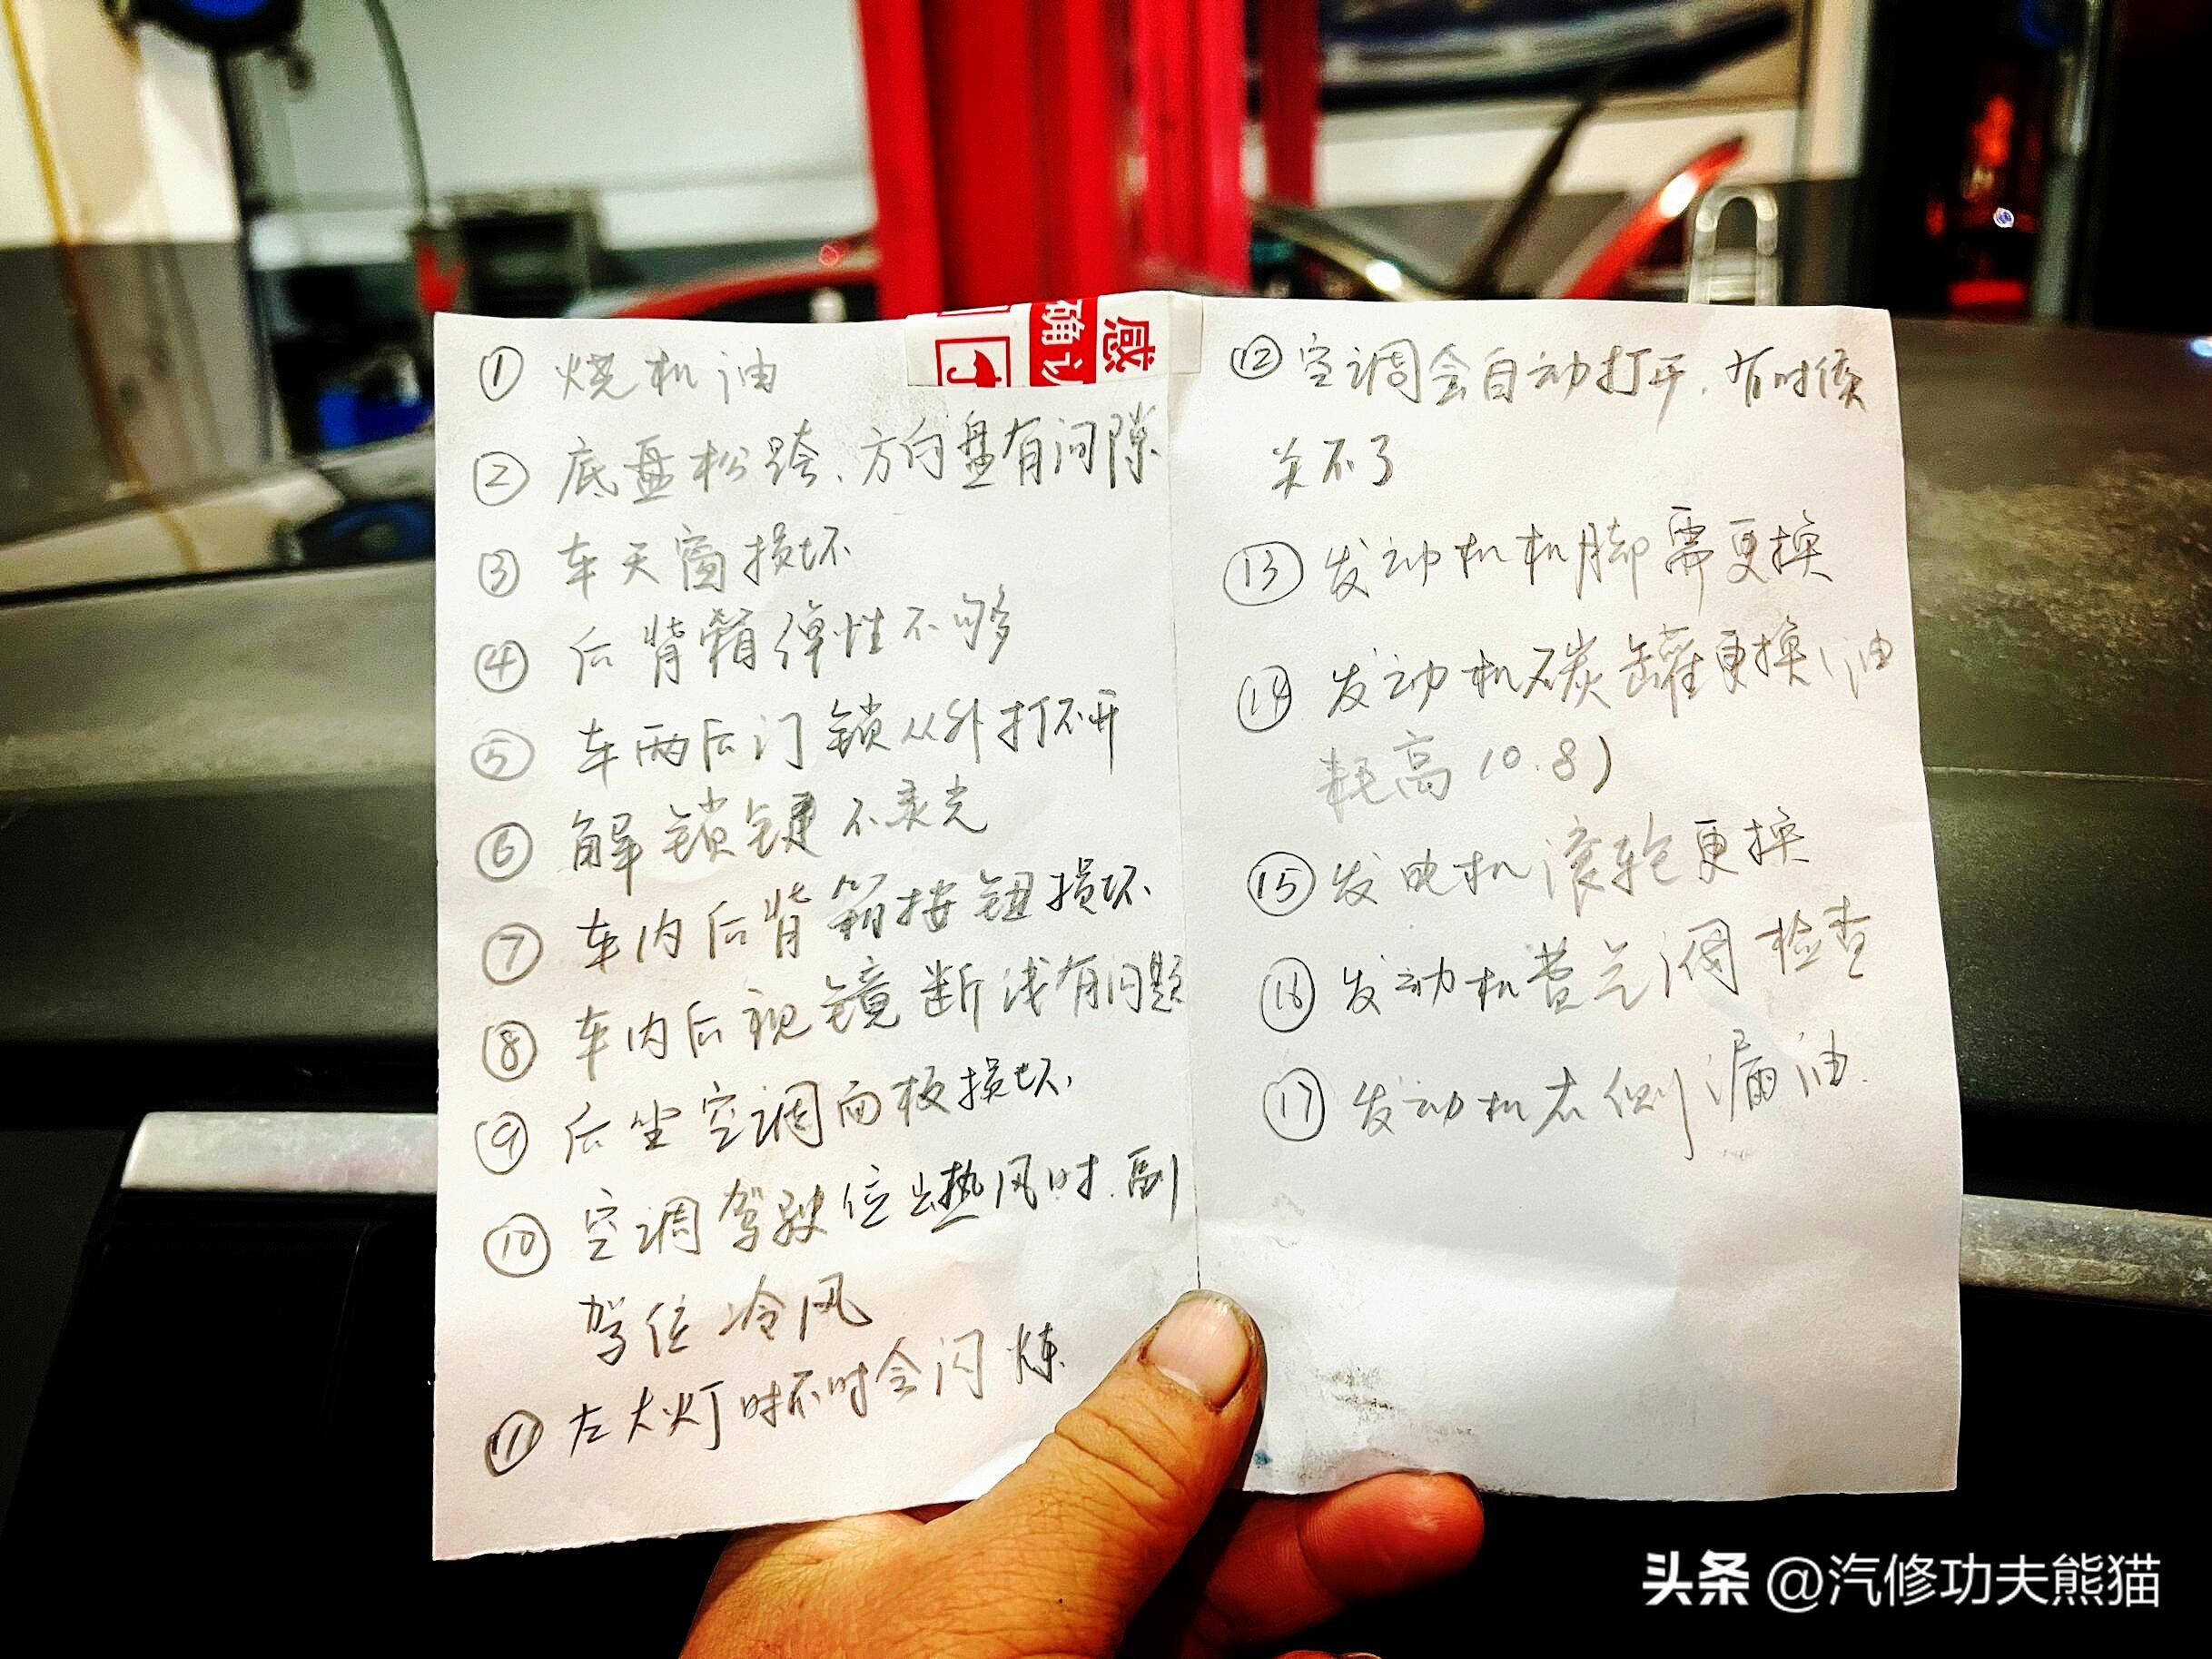 ① 烧机油
② 底盘松垮、方向盘有间隙
③ 车天窗损坏
④ 后背箱弹性不够
⑤ 车两后门锁从外打不开
⑥ 解锁键不灵光
⑦ 车内后背箱按钮损坏
⑧ 车内后视镜断线有问题
⑨ 后坐空调面板损坏
⑩ 空调驾驶位出热风时.副
驾位冷风
⑪ 左大灯时不时会闪烁
⑫ 空调会自动打开.有时候
关不了
⑬ 发动机机脚需更换
⑭ 发动机碳罐更换(油
耗高10.8)
⑮ 发电机滚轮更换
⑯ 发动机 气阀检查
⑰ 发动机右侧漏油.
感
确认
头条 @汽修功夫熊猫